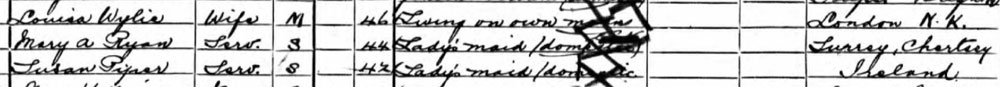 Louisa Wylie Wife M 46 Living on own means London N.K.
Mary A Ryan Serv. S 44 Lady's maid (domestic) Surrey, Chertsey
Susan Piper Serv. S 42 Lady's maid (domestic Ireland